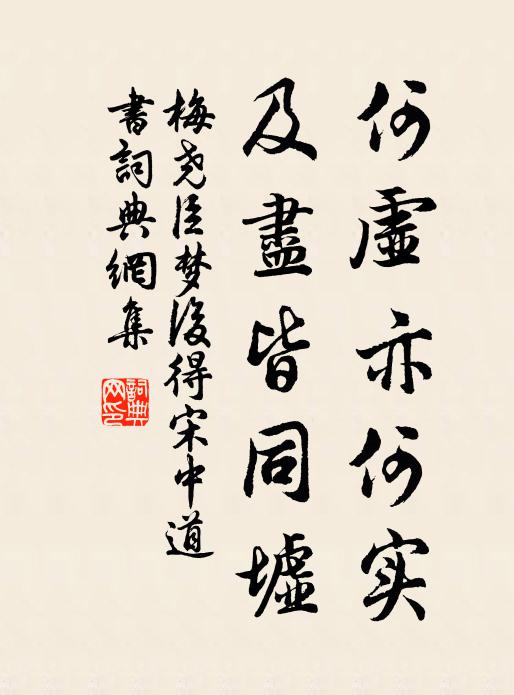 何虚亦何实
及盡皆同墟
梅尧臣梦後得宋中道
書詞典網集
詞典
网印